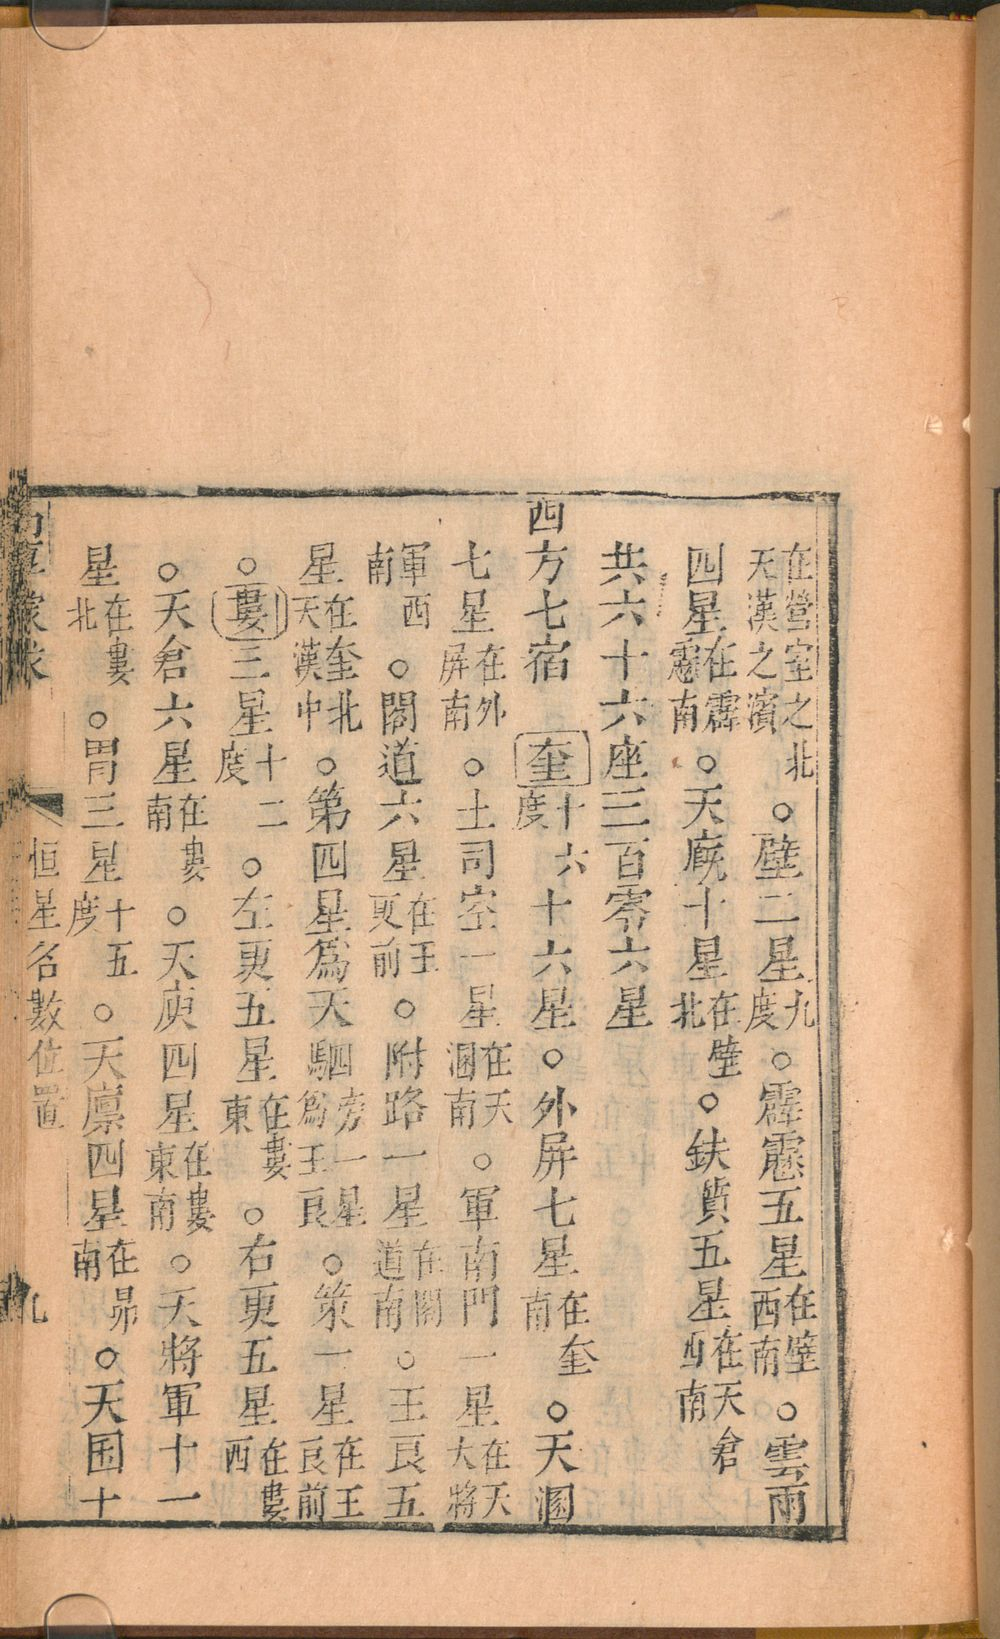 在營室之北天漢之濱○壁二星九度○霹靂五星在壁西南○雲雨
四星在霹靂南○天廐十星在壁北○鈇鑕五星在天倉西南
共六十六座三百零六星
西方七宿 奎十六度十六星○外屏七星在奎南○天溷
七星在外屏南○土司空一星在天溷南○軍南門一星在天大將
軍西南○閣道六星在王更前○附路一星在閣道南○王良五
星在奎北天漢中○第四星爲天駟旁一星爲王良○策一星在王良前
○婁三星十二度○左更五星在婁東○右更五星在婁西
○天倉六星在婁南○天庾四星在婁東南○天將軍十一
星在婁北○胃三星十五度○天廩四星在昴南○天囷十
恒星名數位置 九